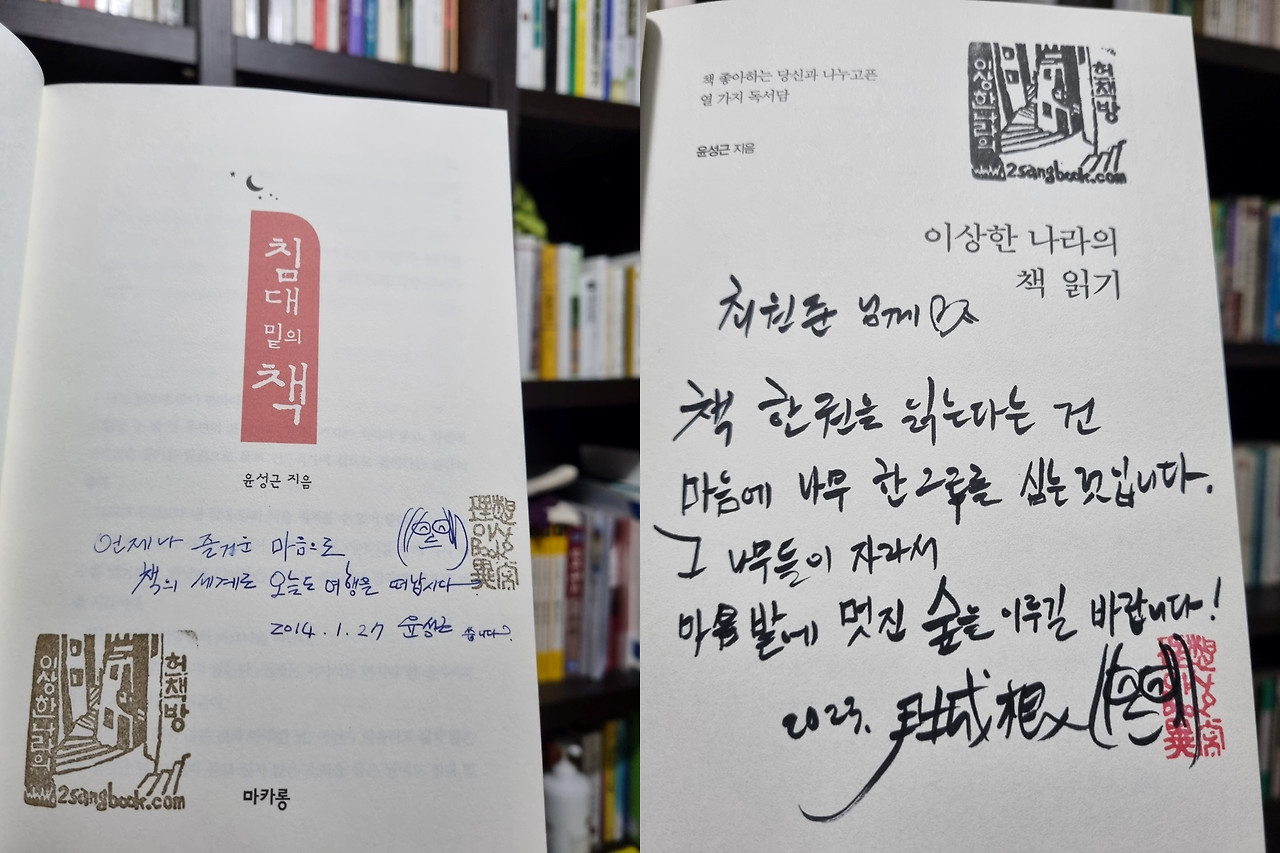 침대
밑의
책
윤성근 지음
언제나 즐거운 마음으로
책의 세계로 오늘도 여행을 떠납시다
2014.1.27 윤성근 씁니다.
이상한나라의
헌책방
2sangbook.com
마카롱
책 좋아하는 당신과 나누고픈
열 가지 독서담
윤성근 지음
이상한나라의
헌책방
2sangbook.com
이상한 나라의
책 읽기
최원준 님께
책 한권을 읽는다는 건
마음에 나무 한 그루를 심는 것입니다.
그 나무들이 자라서
마음 밭에 멋진 숲을 이루길 바랍니다!
2023. 尹成根